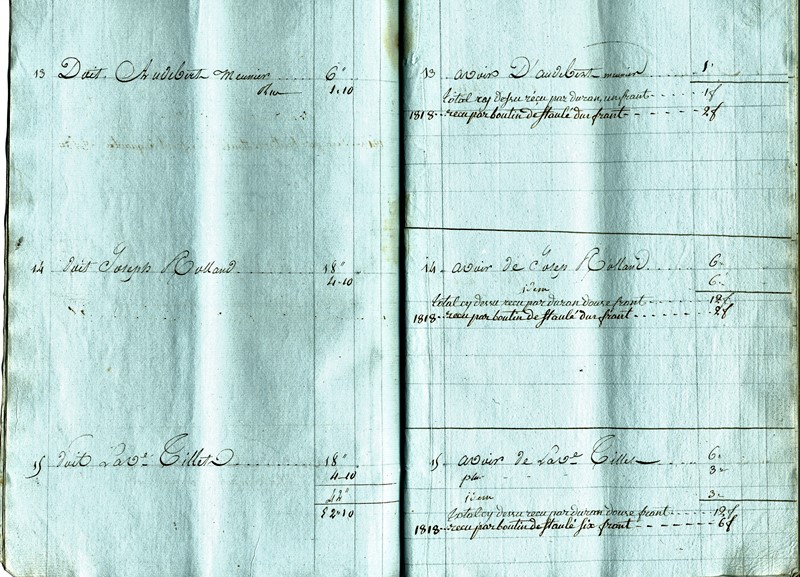 13 Doit Audibert meunier 6"
plus 1.10
14 doit Joseph Rolland 18"
4-10
15 doit La ve Tillet 18"
4-10
42"
52"10
13 avoir D'audibert meunier 1"
total cy dessu récu par duran, un frant 1f
1818 recu par boutin de staulé dus frant 2f
14 avoir de Josep Rolland 6"
idem 6"
total cy dessu recu par duran douse frant 12f
1818 recu par boutin de staulé dus frant 2f
15 avoir de La ve Tillet 6"
plu 3"
idem 3"
total cy dessu recu par duran douse frant 12f
1818 recu par boutin de staulé six frant 6f